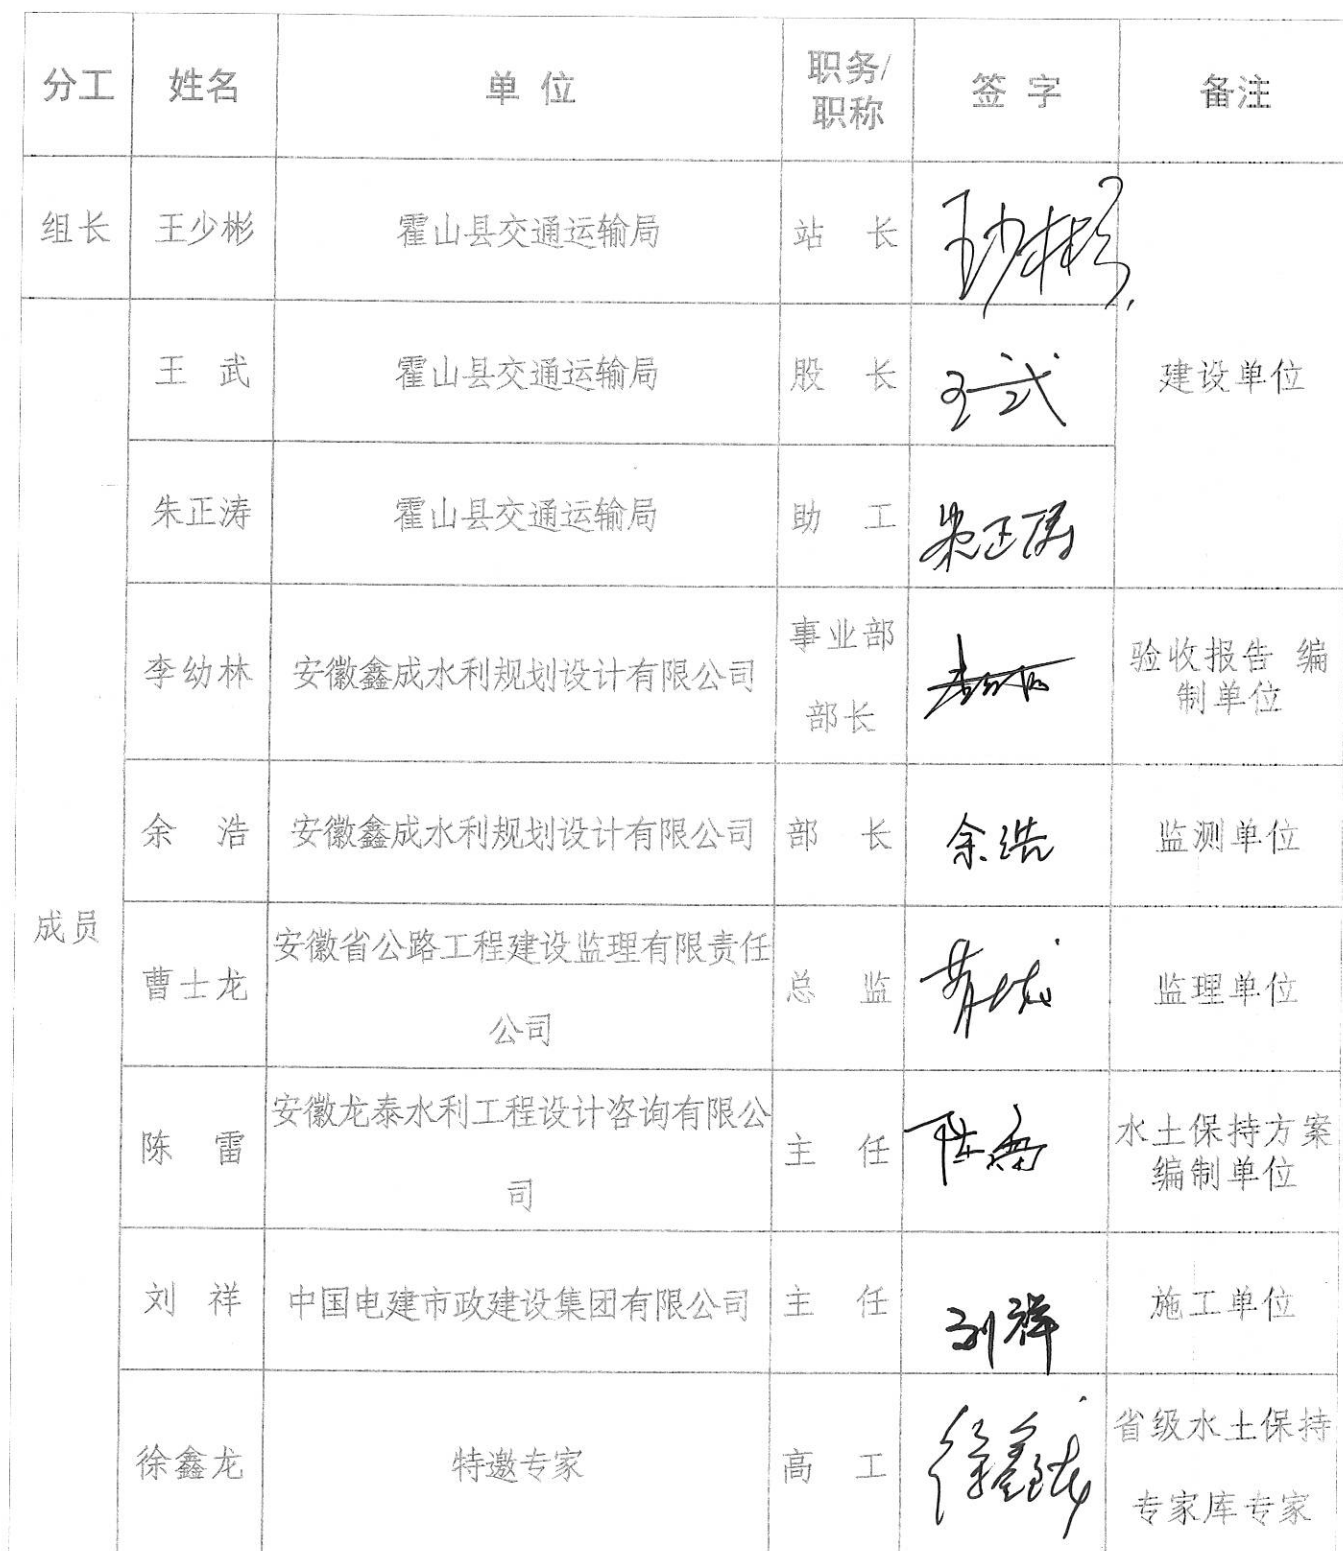 分工 姓名 单 位 职务/职称 签 字 备注
组长 王少彬 霍山县交通运输局 站 长 王少彬
王 武 霍山县交通运输局 股 长 王武 建设单位
朱正涛 霍山县交通运输局 助 工 朱正涛
李幼林 安徽鑫成水利规划设计有限公司 事业部部长 验收报告 编制单位
余 浩 安徽鑫成水利规划设计有限公司 部 长 余浩 监测单位
成员
曹士龙 安徽省公路工程建设监理有限责任公司 总 监 监理单位
陈 雷 安徽龙泰水利工程设计咨询有限公司 主 任 陈雷 水土保持方案编制单位
刘 祥 中国电建市政建设集团有限公司 主 任 刘祥 施工单位
徐鑫龙 特邀专家 高 工 徐鑫龙 省级水土保持专家库专家